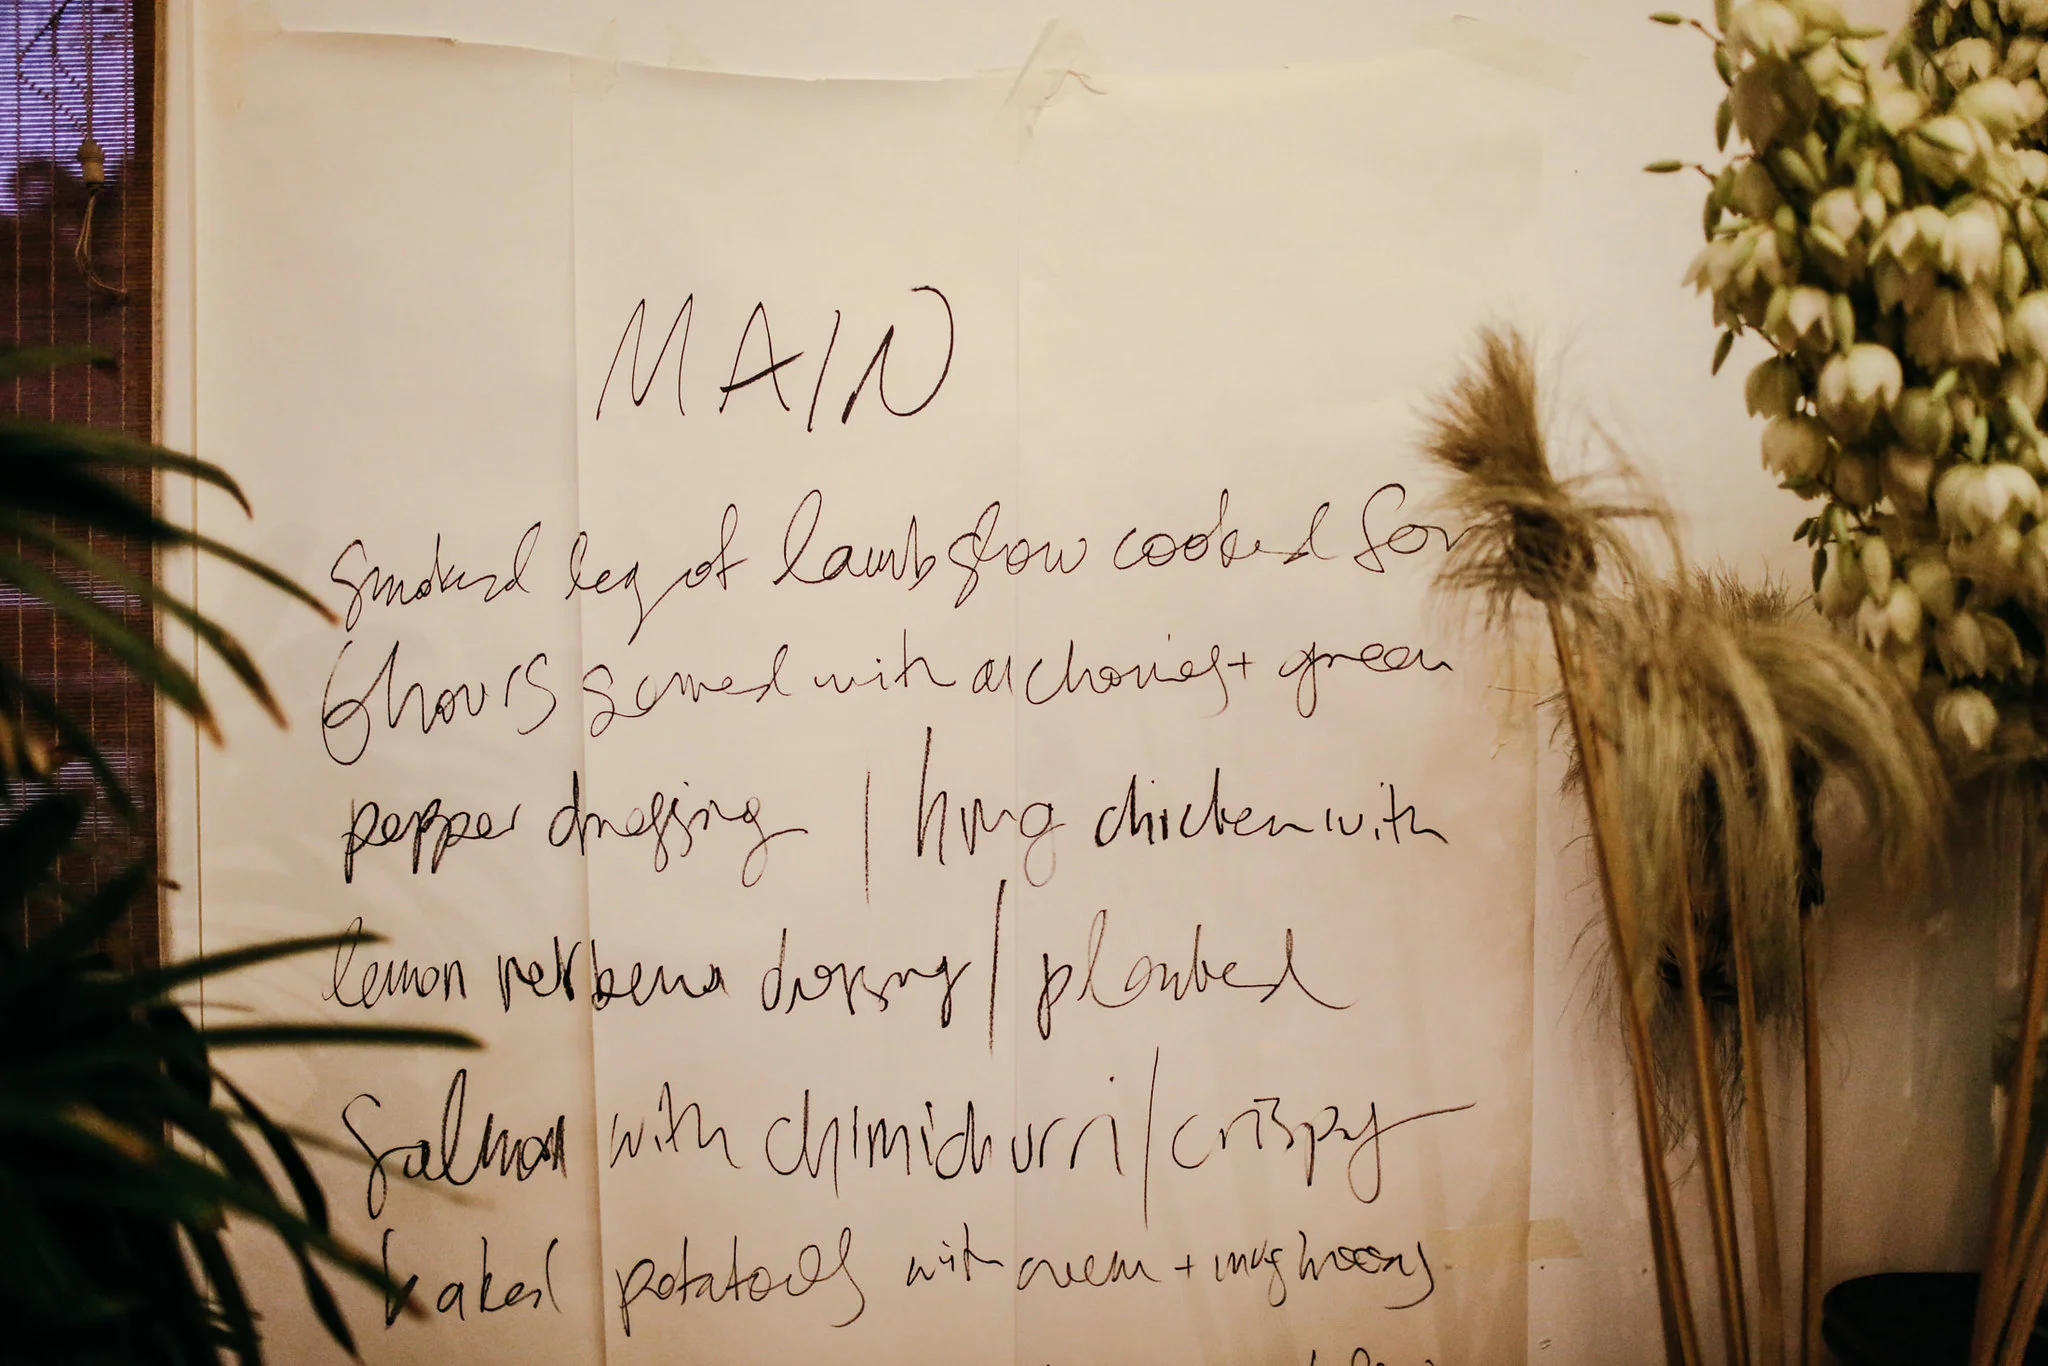 MAIN
Smoked leg of lamb slow cooked for
6 hours served with anchovies + green
pepper dressing / hung chicken with
lemon verbena dressing / planked
Salmon with chimichurri / crispy
baked potatoes with cream + mushrooms